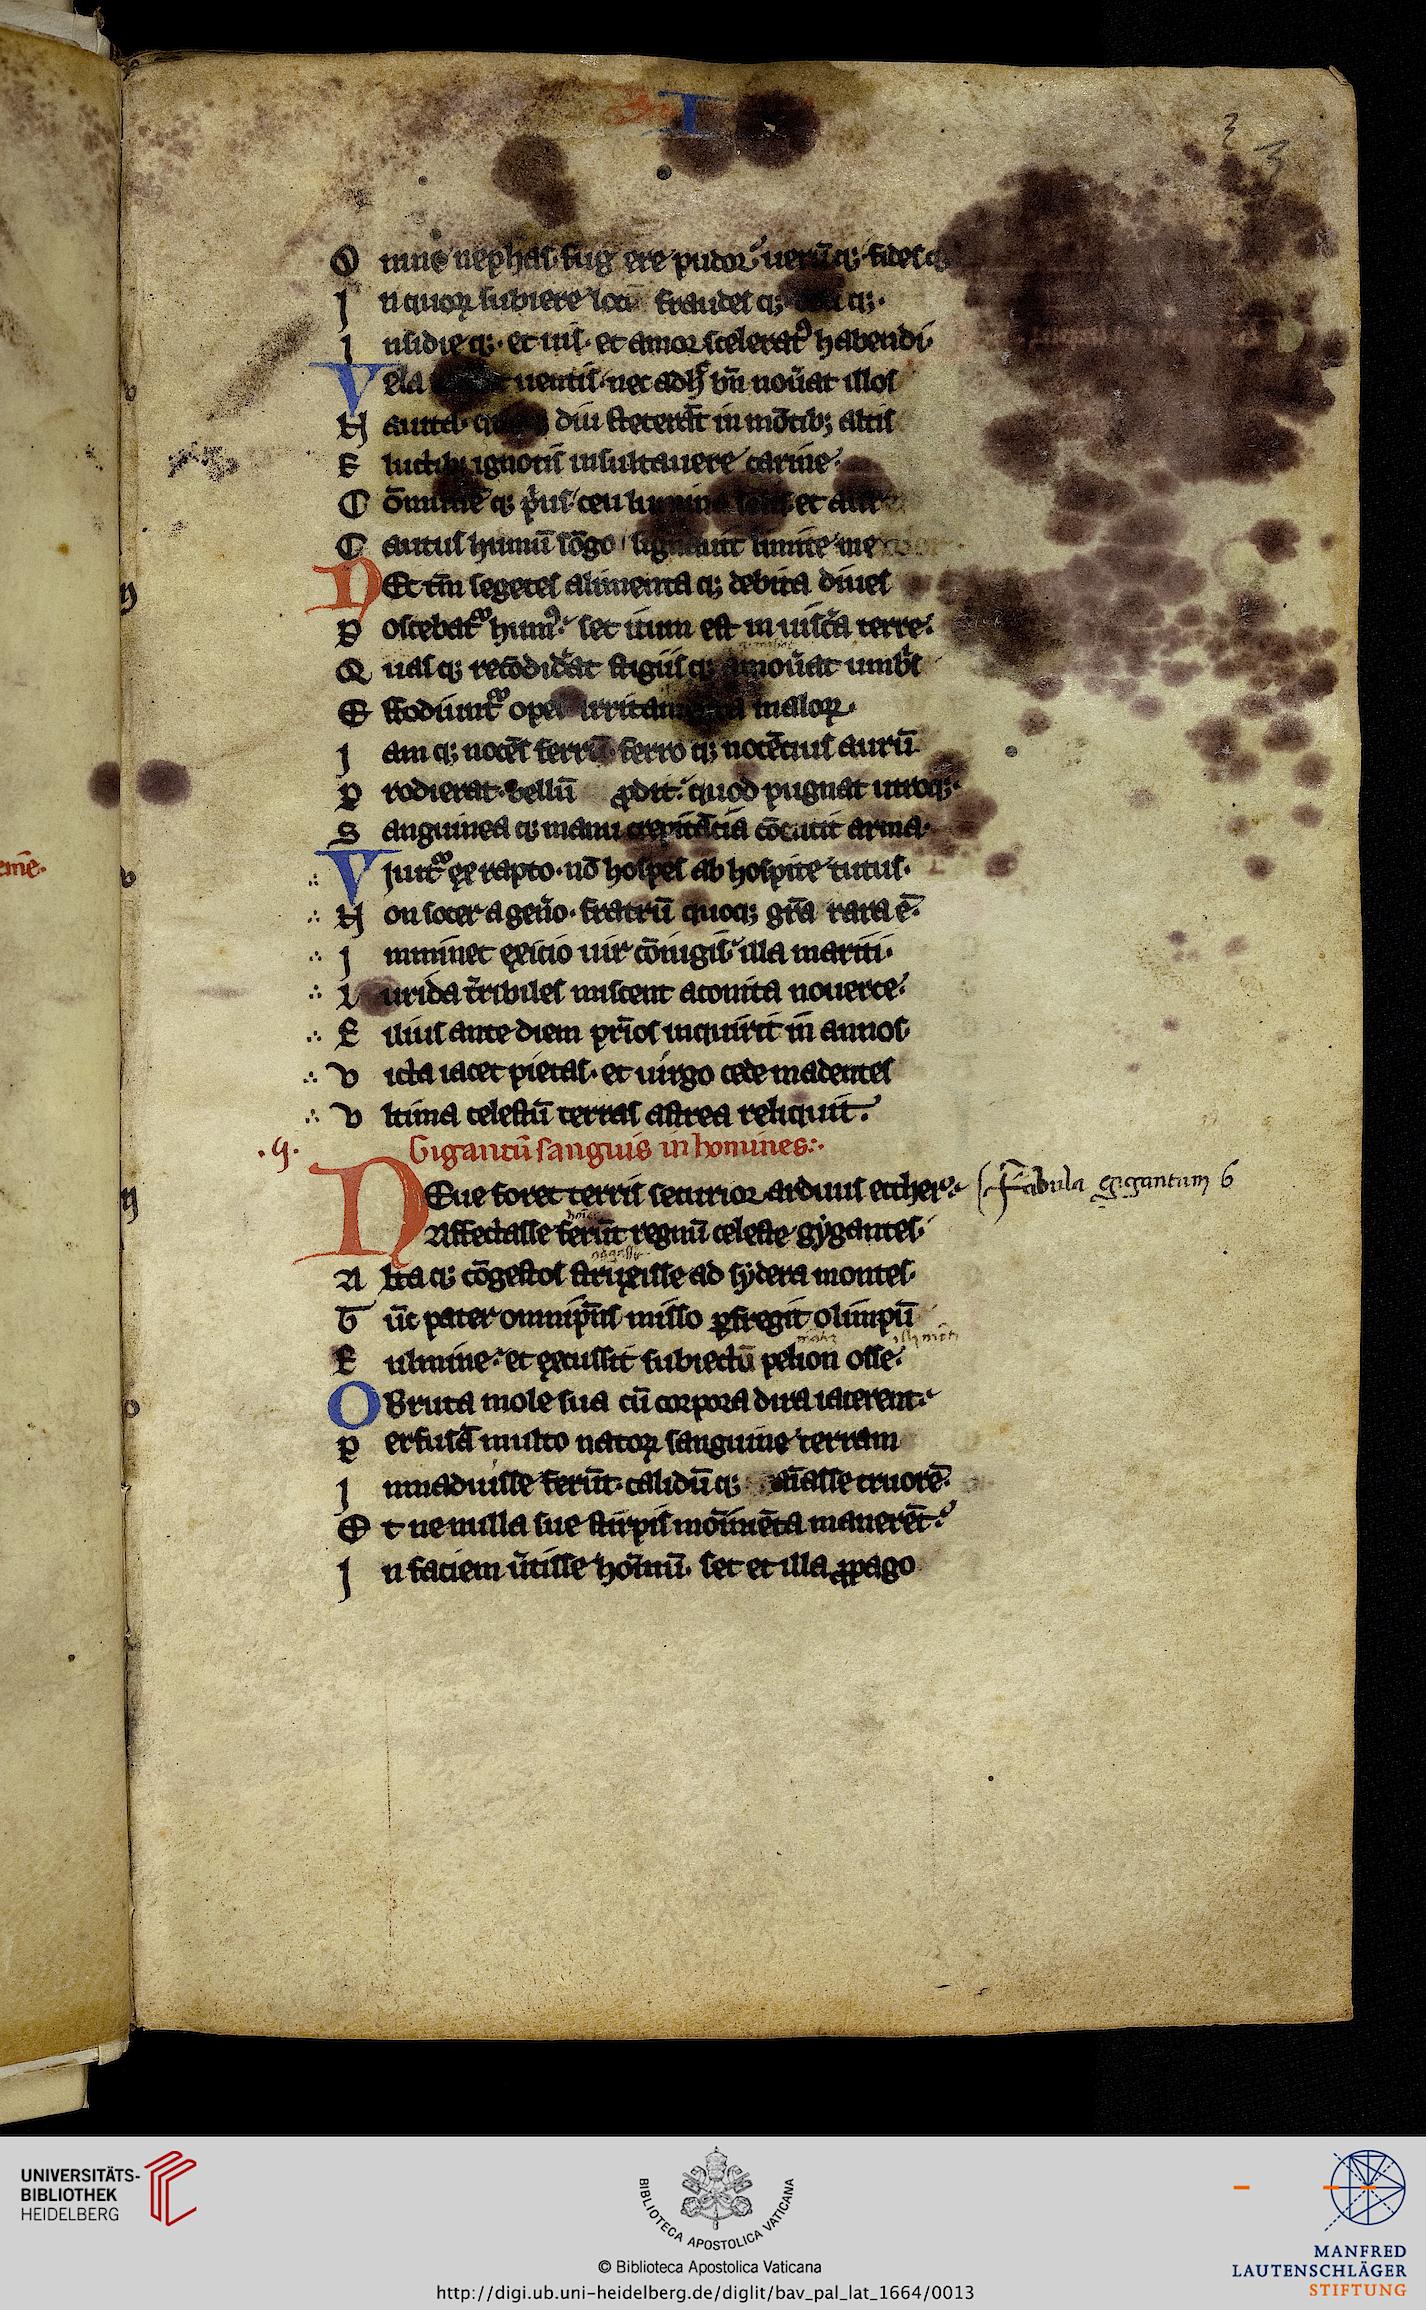 I
3
3
O mne nephas fugere pudor uerūq; fidesq;
J n quoꝝ subiere locū fraudes q; q;
J nsidie q; et uis et amor sceleratꝰ habendi
V ela uentis nec adhꝰ bn̄ nou̾at illos
N auita q diu steterāt in mōtibꝫ altis
F luctibꝫ ignotis insultauere carine
C ōmunē q; pͥus ceu lumina solis et aure
C autus humū lōgo signauit limite mensor
N Ec tm̄ segetes alimenta q; debita diues
P oscebat᷑ humꝰ set itum est in uisc̾a terre
Q uas q; recōdid̾at stigiis q; amou̾at umbͥs
E ffodiunt᷑ opes irritamenta maloꝝ
J am q; nocēs ferrū ferro q; nocēcius aurū
P rodierat bellū ꝓdit quod pugnat utroq;
S anguinea q; manu crepitācia cōcutit arma
V Juit᷑ ex rapto nō hospes ab hospite tutus
N on socer a gen̾o fratrū quoq; grā rara ē
J mminet exicio uir cōiugis illa mariti
L urida t̾ribiles miscent aconita nouerce
F ilius ante diem pr̄ios inquirit in annos
V icta iacet pietas et uirgo cede madentes
V ltima celestū terras astrea reliquit
.g. Gigantū sanguis in homines
N Eue foret terris securior arduus ether
Fabula gigantum 6
Affectasse ferūt regnū celeste gygantes
A lta q; cōgestos struxisse ad sydera montes
T ūc pater omnipn̄s misso ꝑfregit olimpū
F ulmine et excussit subiectū pelion osse
O Bruta mole sua cū corpora dira iacerent
P erfusā multo natoꝝ sanguine terram
J mmaduisse ferūt calidū q; aīasse cruorē
E t ne nulla sue stirpis moīmēta manerēt
J n faciem u̾tisse hoīnū set et illa ꝓpago
UNIVERSITÄTS-
BIBLIOTHEK
HEIDELBERG
BIBLIOTECA APOSTOLICA VATICANA
© Biblioteca Apostolica Vaticana
http://digi.ub.uni-heidelberg.de/diglit/bav_pal_lat_1664/0013
MANFRED
LAUTENSCHLÄGER
STIFTUNG